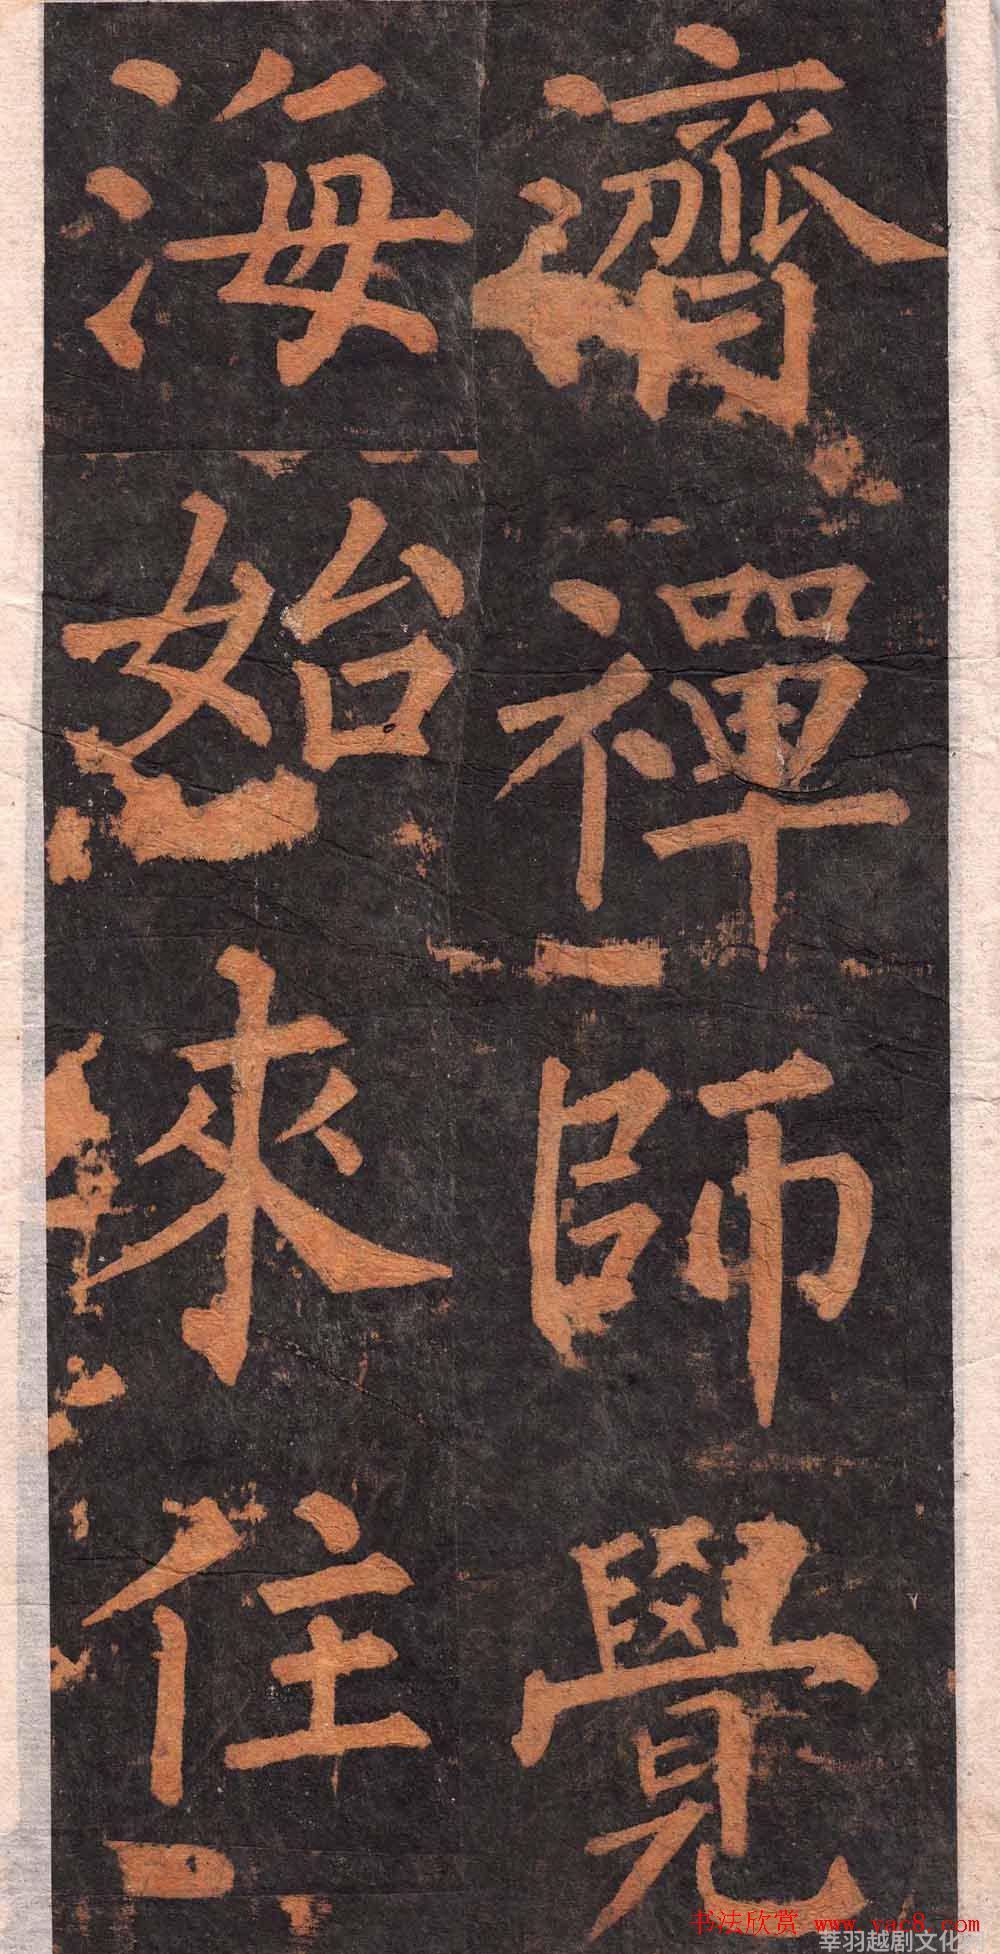 濟禪師覺
海始来住
书法欣赏 www.yac8.com
莘羽越剧文化